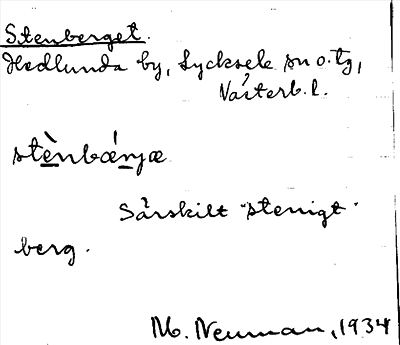 Stenberget.
Hedlunda by, Lycksele sn o. tg,
Västerb. l.
stènbǽnjæ
Särskilt "stenigt"
berg.
M. Neuman, 1934